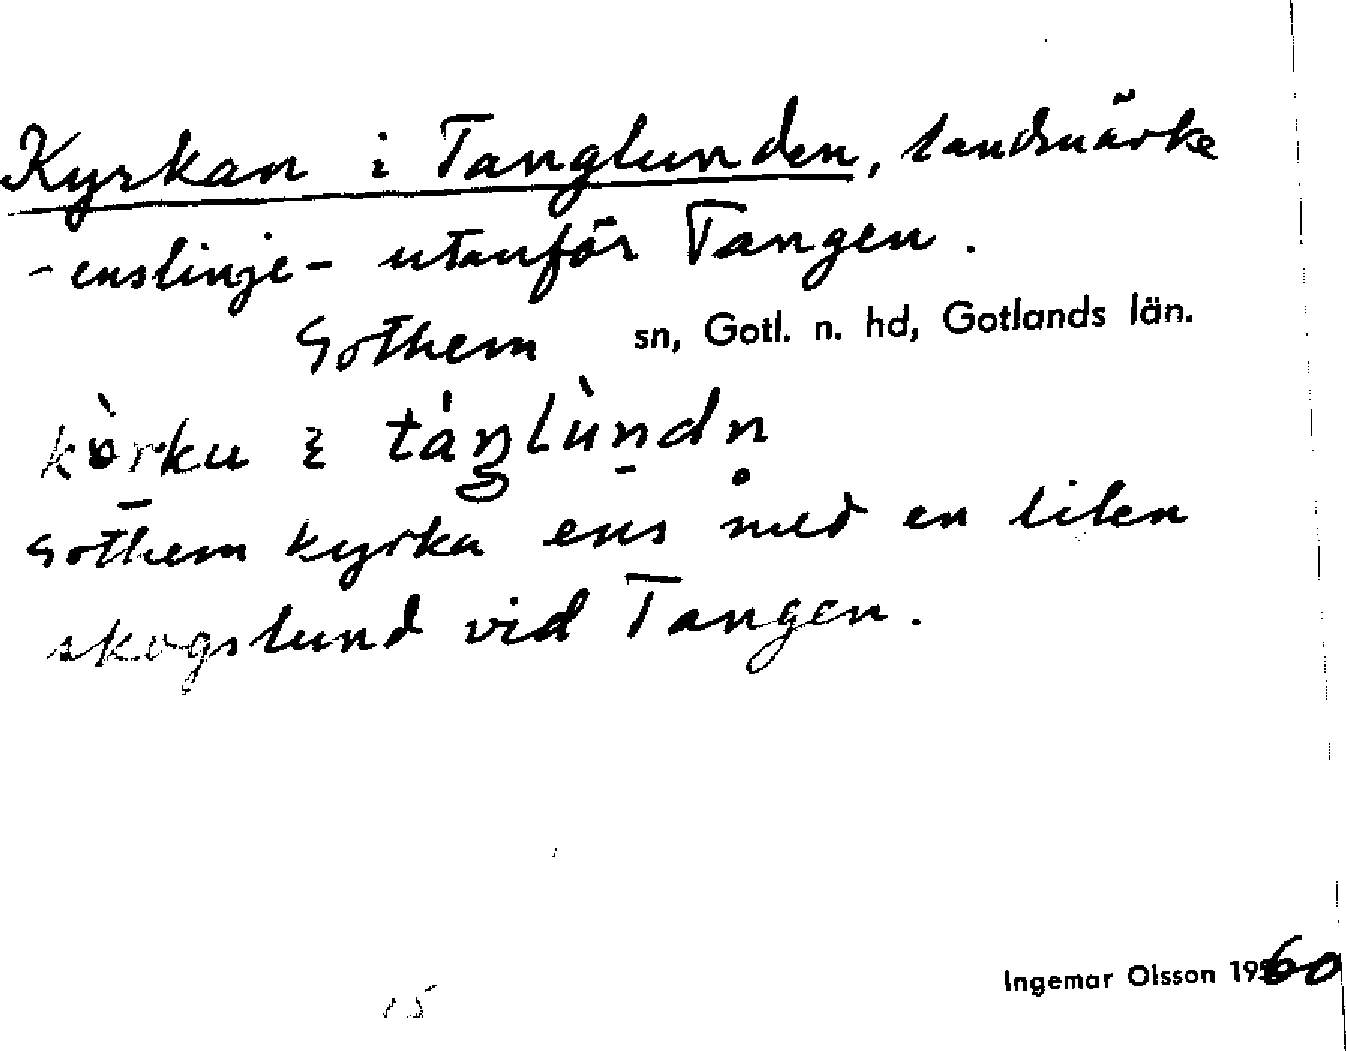 Kyrkan i Tanglunden, landmärke
- enslinje - utanför Tangen.
Gothem sn, Gotl. n. hd, Gotlands län.
Gothem kyrka ens med en liten
skogslund vid Tangen.
Ingemar Olsson 1960
15